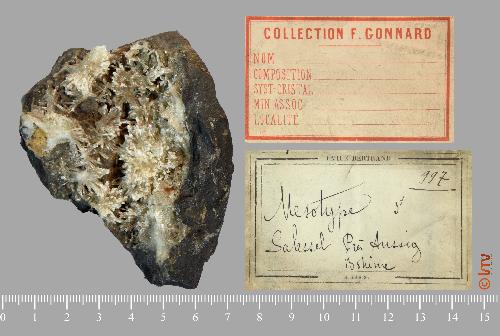 COLLECTION F. GONNARD
NOM
COMPOSITION
SYST. CRISTAL
MIN. ASSOC.
LOCALITÉ
EMILE BERTRAND
997
Mesotype
Salesel Près Aussig
Bohême
0 1 2 3 4 5 6 7 8 9 10 11 12 13 14 15